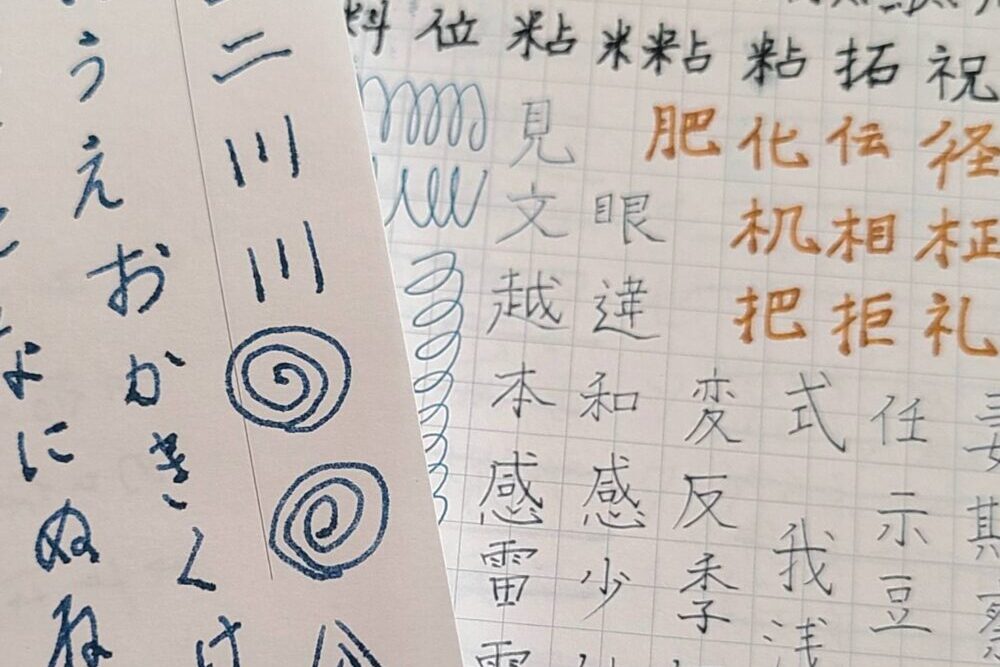 二川川
うえおかきくけ
よにぬね
料位粘米粘粘拓祝
見肥化伝径
文眼机相柾
越達把拒礼
本和変式任
感感反示
雷少季我豆
浅